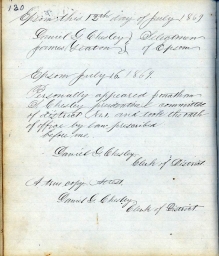 130
Epsom this 12th day of July 1869
Daniel G Chesley } Selectmen
James Yeaton } of Epsom
Epsom July 16 1869.
Personally appeared Jonathan
S Chesley prudential committee
of district and took the oath
of office by law prescribed
before me
Daniel G Chesley
Clerk of District
A true copy Attest.
Daniel G Chesley
Clerk of District